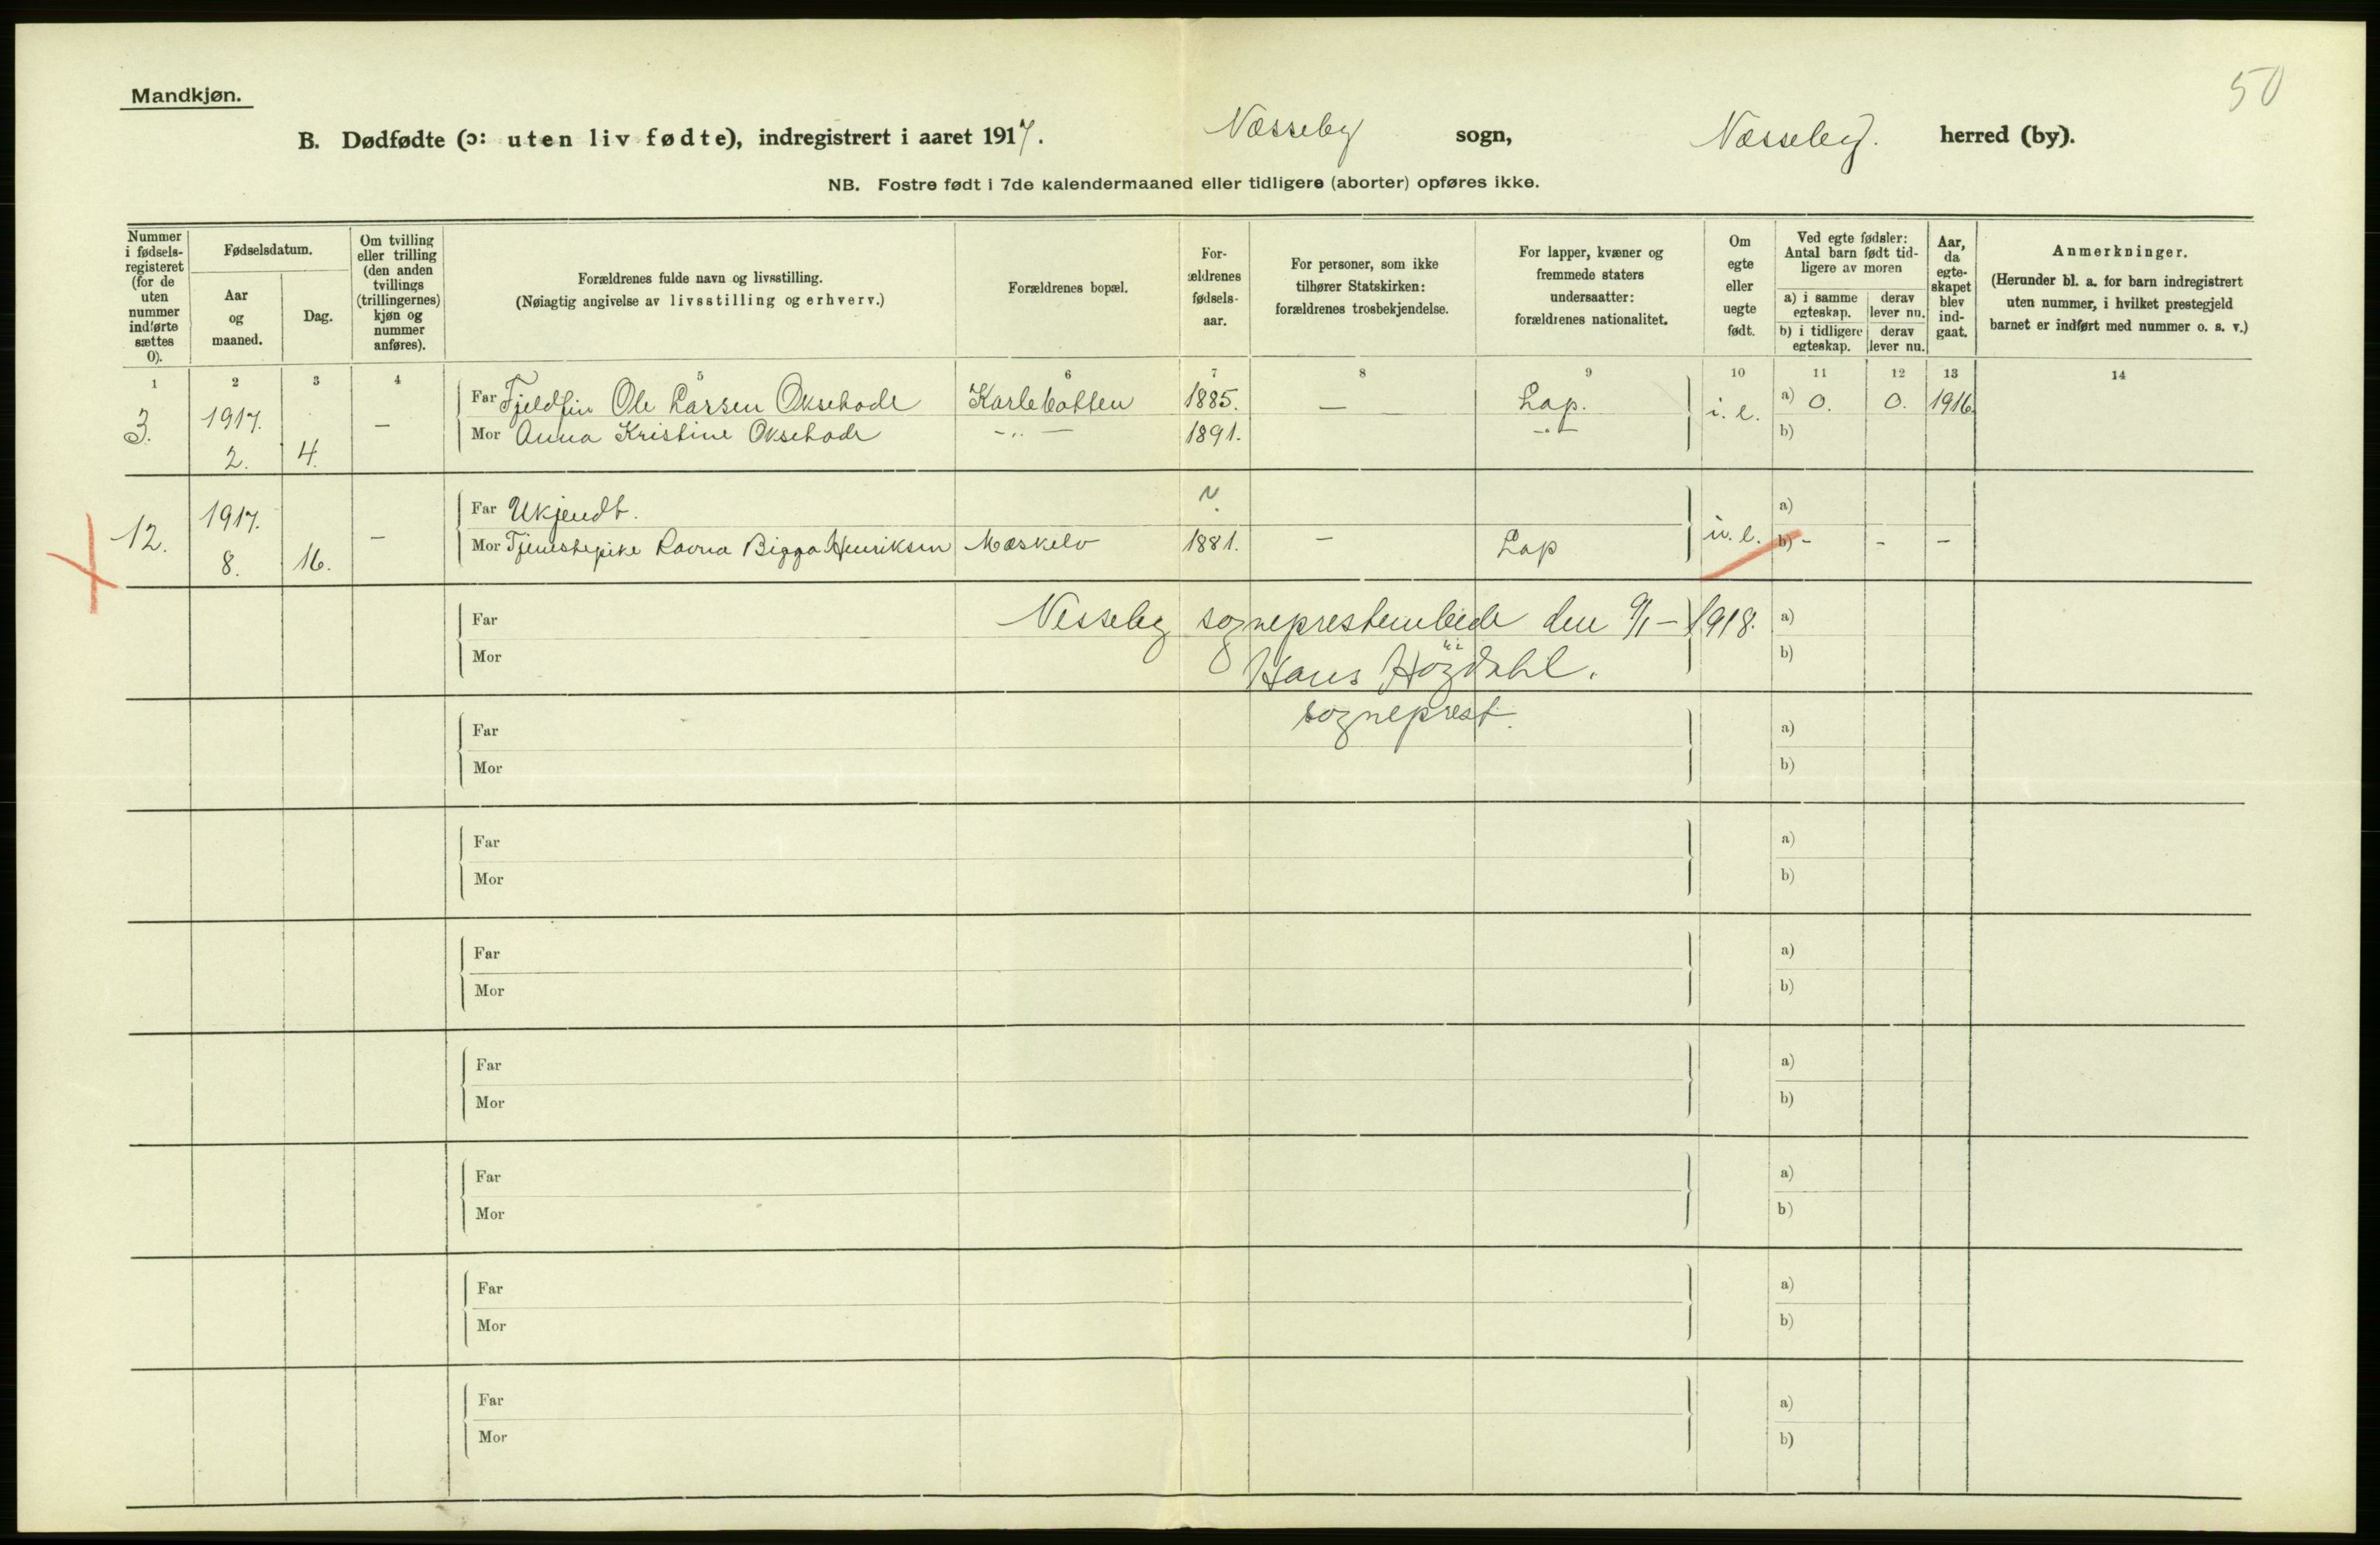 50
Mandkjøn.
B. Dødfødte (ɔ: uten liv fødte), indregistrert i aaret 1917. Næsseby sogn, Næsseby. herred (by).
NB. Fostre født i 7de kalendermaaned eller tidligere (aborter) opføres ikke.
Nummer i fødsels-registeret (for de uten nummer indførte sættes 0).
Fødselsdatum.
Aar og maaned.
Dag.
Om tvilling eller trilling (den anden tvillings (trillingernes) kjøn og nummer anføres).
Forældrenes fulde navn og livsstilling.
(Nøiagtig angivelse av livsstilling og erhverv.)
Forældrenes bopæl.
For-ældrenes fødsels-aar.
For personer, som ikke tilhører Statskirken: forældrenes trosbekjendelse.
For lapper, kvæner og fremmede staters undersaatter: forældrenes nationalitet.
Om egte eller uegte født.
Ved egte fødsler: Antal barn født tid-ligere av moren
a) i samme egteskap.
derav lever nu.
b) i tidligere egteskap.
derav lever nu.
Aar, da egte-skapet blev ind-gaat.
Anmerkninger.
(Herunder bl. a. for barn indregistrert uten nummer, i hvilket prestegjeld barnet er indført med nummer o. s. v.)
1 2 3 4 5 6 7 8 9 10 11 12 13 14
3. 1917. 2. 4. – Far Fjeldfin Ole Larsen Oksehode Karlebotten 1885. – Lap. i. e. a) 0. 0. 1916.
Mor Anna Kristine Oksehode -„- 1891. -„- b)
12. 1917. 8. 16. – Far Ukjendt. ? a)
Mor Tjenestepike Ravna Bigga Henriksen Mæskelv 1881. – Lap u. e. b) - - -
Far Nesseby sogneprestembede den 9/1-1918. a)
Mor Hans Høgdahl. b)
sogneprest.
Far a)
Mor b)
Far a)
Mor b)
Far a)
Mor b)
Far a)
Mor b)
Far a)
Mor b)
Far a)
Mor b)
Far a)
Mor b)